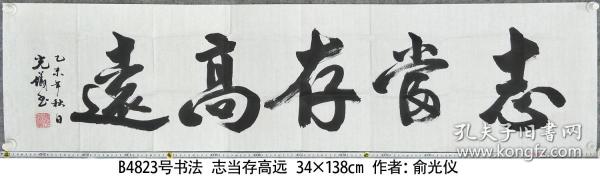 志當存高遠
乙未年秋日
光儀書
孔夫子旧书网
www.kongfz.com
B4823号书法 志当存高远 34×138cm 作者：俞光仪